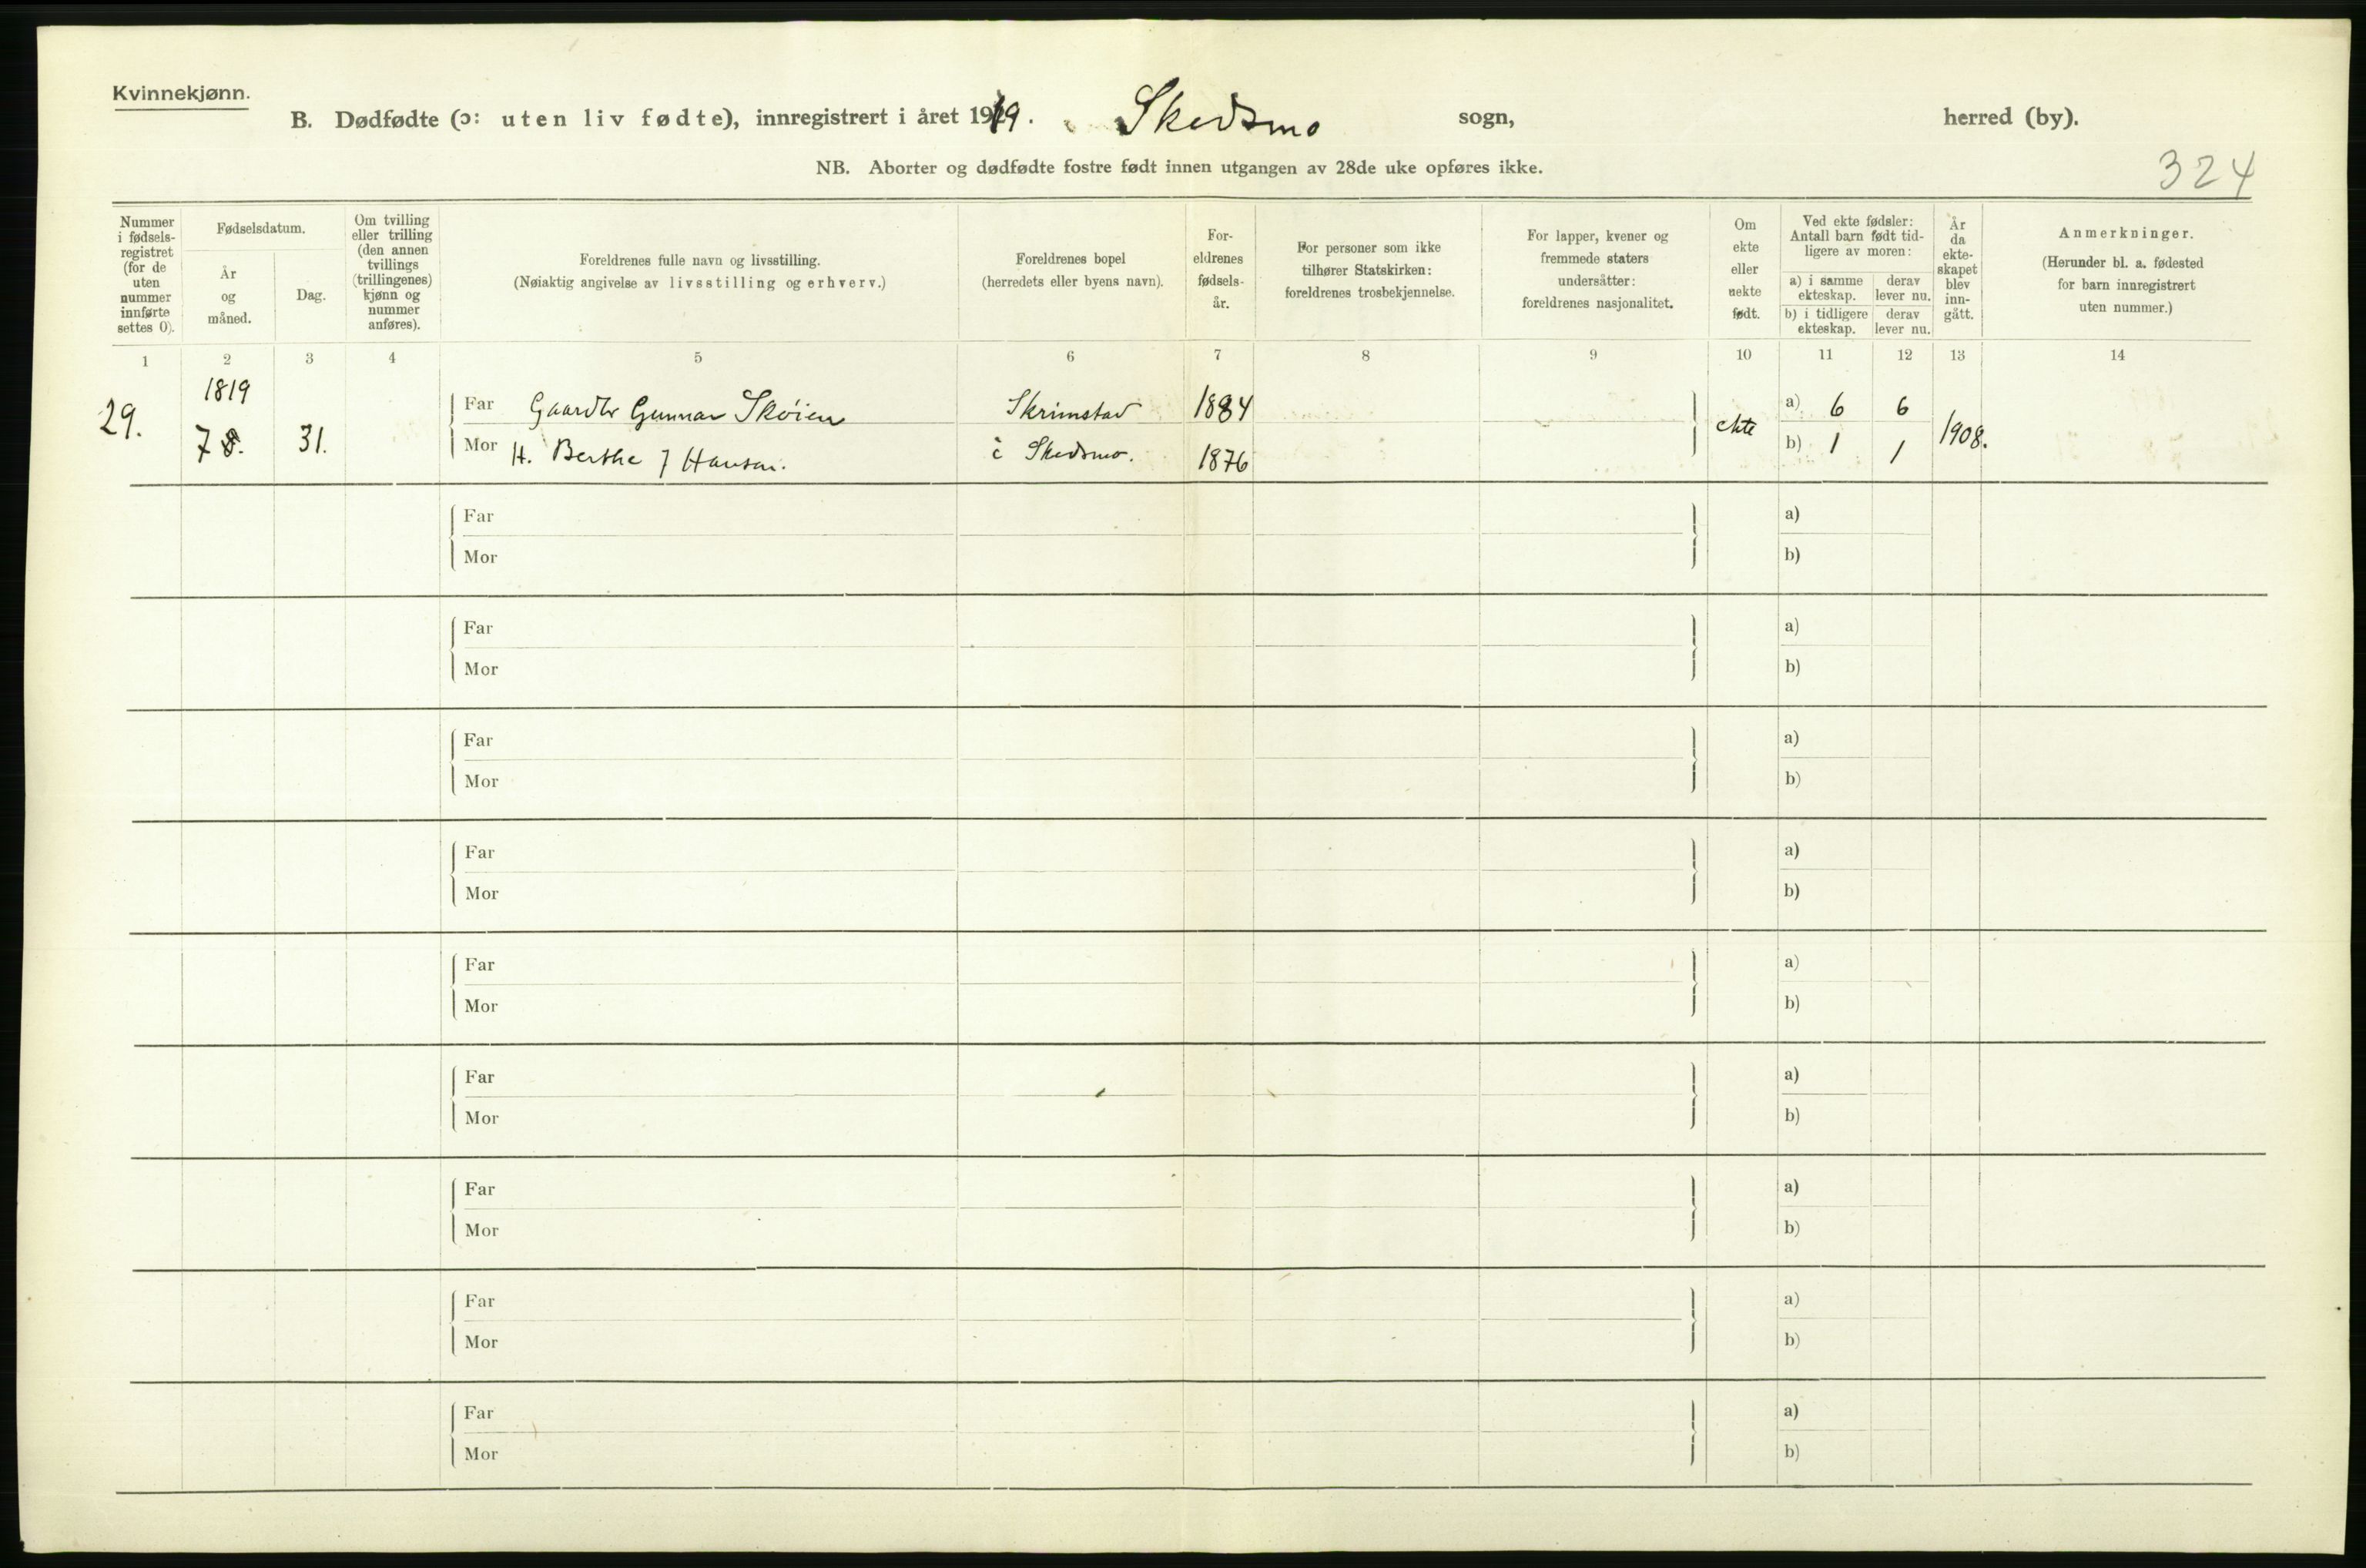 Kvinnekjønn.
B. Dødfødte (ɔ: uten liv fødte), innregistrert i året 1919. Skedsmo sogn, herred (by).
NB. Aborter og dødfødte fostre født innen utgangen av 28de uke opføres ikke.
324
Nummer i fødsels-registret (for de uten nummer innførte settes 0).
Fødselsdatum.
År og måned.
Dag.
Om tvilling eller trilling (den annen tvillings (trillingenes) kjønn og nummer anføres).
Foreldrenes fulle navn og livsstilling.
(Nøiaktig angivelse av livsstilling og erhverv.)
Foreldrenes bopel
(herredets eller byens navn).
For-eldrenes fødsels-år.
For personer som ikke tilhører Statskirken: foreldrenes trosbekjennelse.
For lapper, kvener og fremmede staters undersåtter: foreldrenes nasjonalitet.
Om ekte eller uekte født.
Ved ekte fødsler: Antall barn født tid-ligere av moren:
a) i samme ekteskap.
derav lever nu.
b) i tidligere ekteskap.
derav lever nu.
År da ekte-skapet blev inn-gått.
Anmerkninger.
(Herunder bl. a. fødested for barn innregistrert uten nummer.)
1 2 3 4 5 6 7 8 9 10 11 12 13 14
1819
Far Gaardbr Gunnar Skøien Skrimstad 1884 a) 6 6
29. 7 8. 31. ekte 1908.
Mor H. Berthe J Hansen. i Skedsmo. 1876 b) 1 1
Far a)
Mor b)
Far a)
Mor b)
Far a)
Mor b)
Far a)
Mor b)
Far a)
Mor b)
Far a)
Mor b)
Far a)
Mor b)
Far a)
Mor b)
Far a)
Mor b)